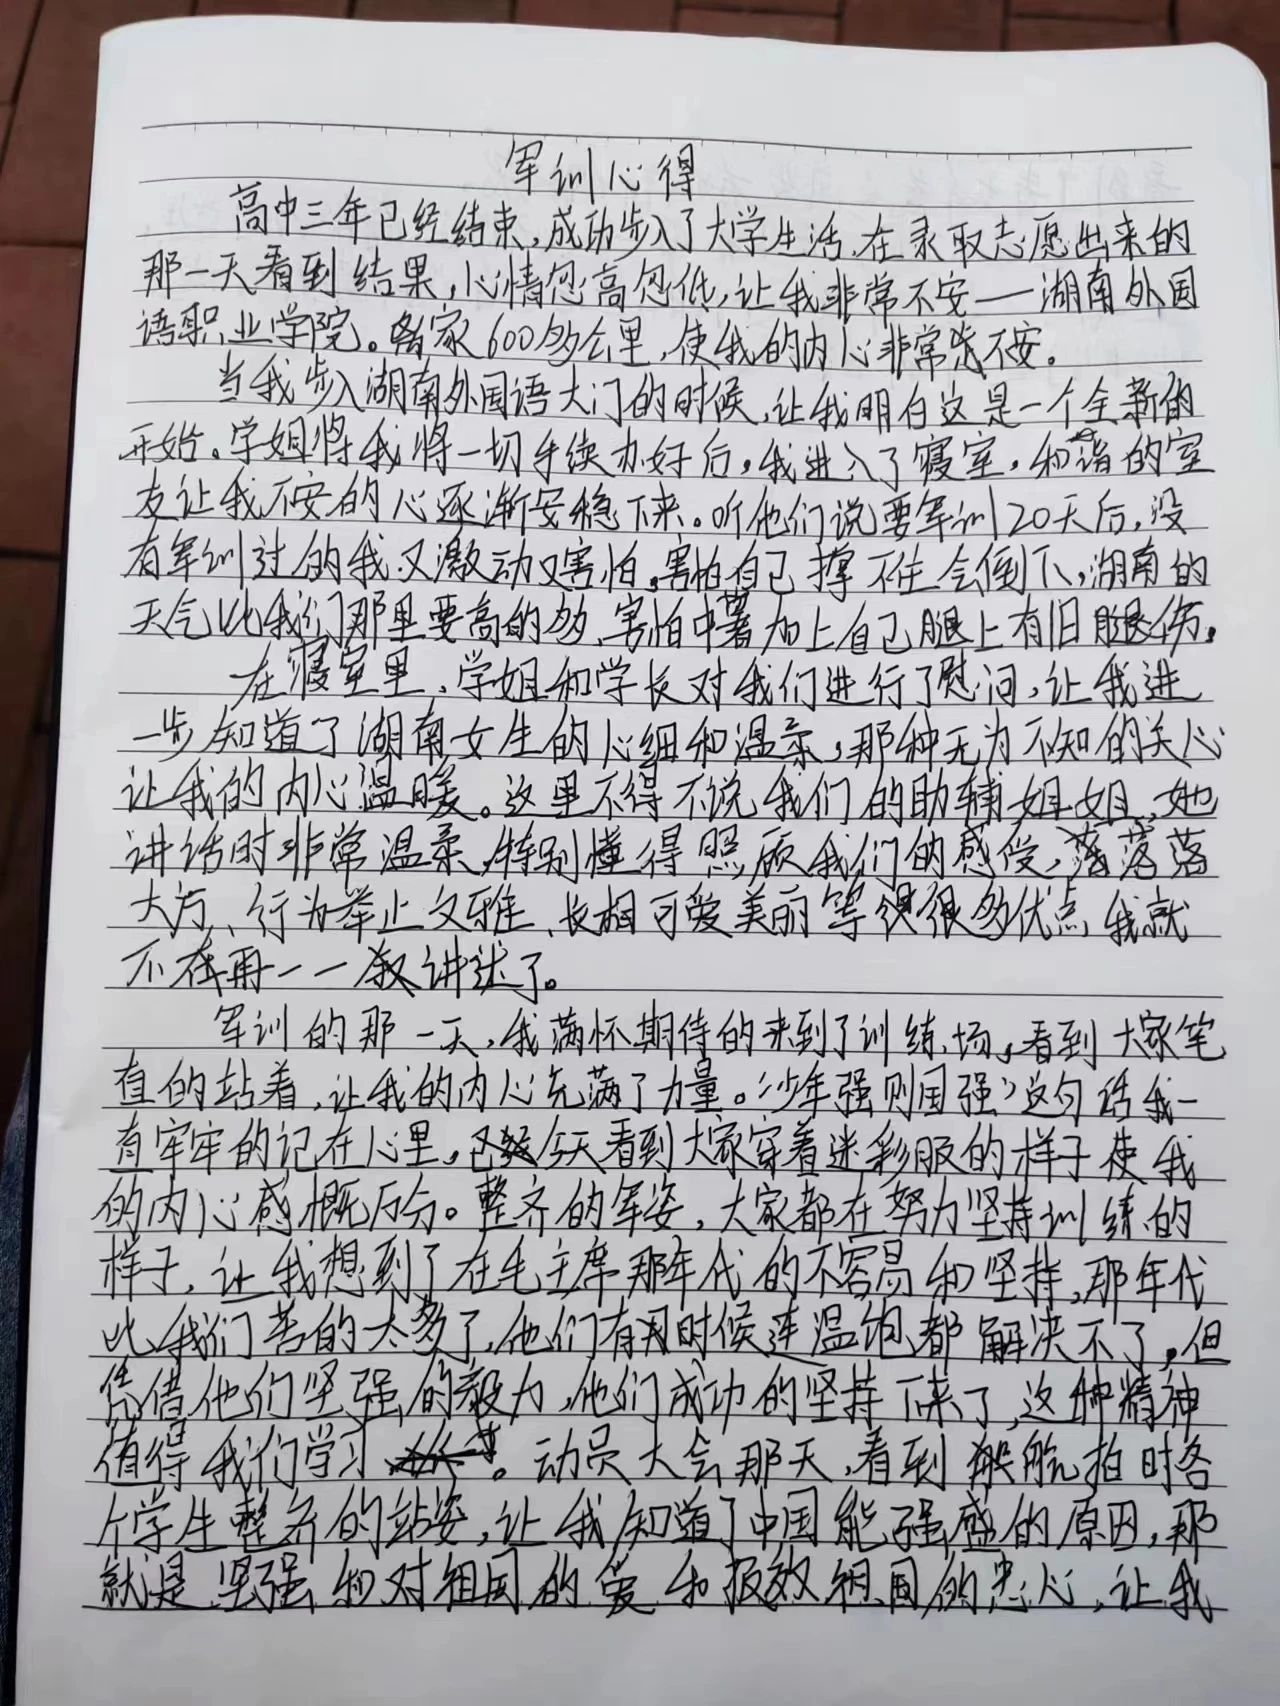 军训心得
高中三年已经结束,成功步入了大学生活,在录取志愿出来的
那一天看到结果,心情忽高忽低,让我非常不安——湖南外国
语职业学院。离家600多公里,使我的内心非常不安。
当我步入湖南外国语大门的时候,让我明白这是一个全新的
开始。学姐将我将一切手续办好后,我进入了寝室,和谐的室
友让我不安的心逐渐安稳下来。听他们说要军训20天后,没
有军训过的我又激动又害怕,害怕自己撑不住会倒下,湖南的
天气比我们那里要高的多,害怕中暑加上自己腿上有旧腿伤。
在寝室里,学姐和学长对我们进行了慰问,让我进
一步知道了湖南女生的心细和温柔,那种无为不知的关心
让我的内心温暖。这里不得不说我们的助辅姐姐,她
讲话时非常温柔,特别懂得照顾我们的感受,落落
大方、行为举止文雅、长相可爱美丽等很多优点,我就
不再一一叙讲述了。
军训的那一天,我满怀期待的来到了训练场,看到大家笔
直的站着,让我的内心充满了力量。“少年强则国强”这句话我一
直牢牢的记在心里,今天看到大家穿着迷彩服的样子使我
的内心感概万分。整齐的军姿,大家都在努力坚持训练的
样子,让我想到了在毛主席那年代的不容易和坚持,那年代
比我们苦的太多了,他们有的时候连温饱都解决不了,但
凭借他们坚强的毅力,他们成功的坚持下来了,这种精神
值得我们学习。动员大会那天,看到航拍时各
个学生整齐的站姿,让我知道了中国能强盛的原因,那
就是坚强和对祖国的爱和报效祖国的忠心,让我